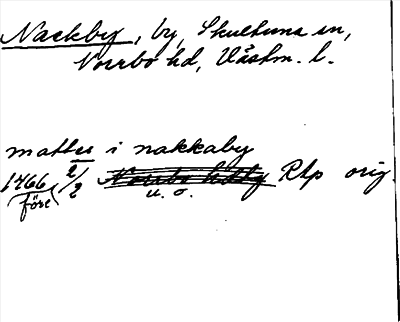 Nackby, by, Skultuna sn,
Norrbo hd, Västm. l.
mattes i nakkaby
1466 (före) 2/2 Norrbo hd Rlp orig.
u. o.